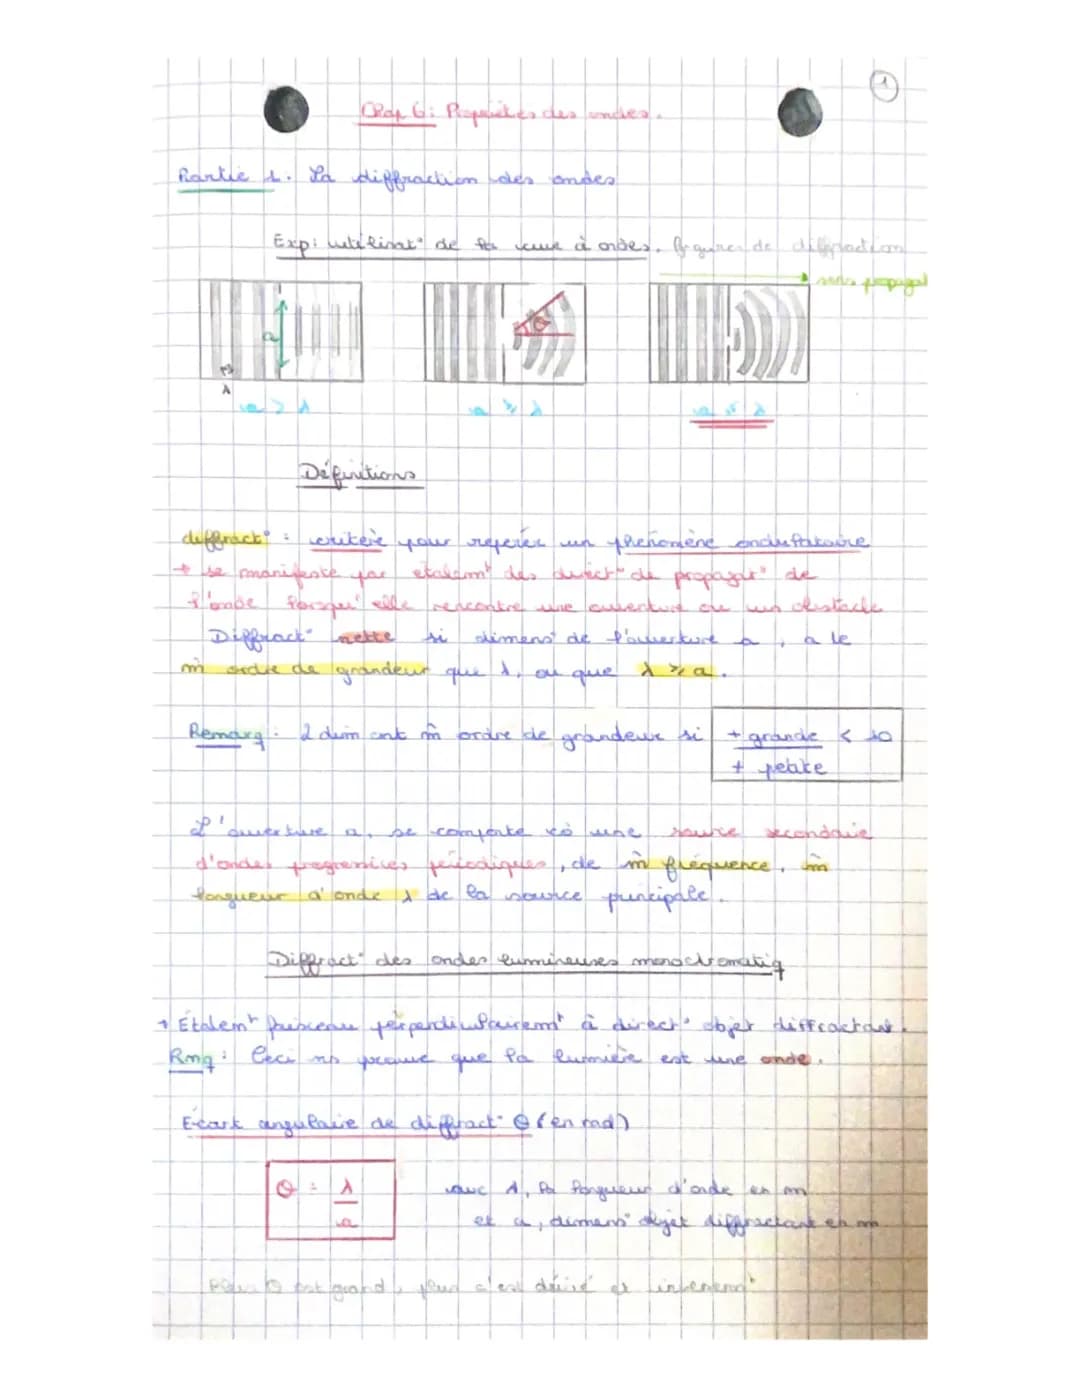 1
Chap 6: Propriétés des ondes.
Partie 1. La diffraction des ondes
Exp: utilisat° de la cuve à ondes. figures de diffraction
sens propagat
a
θ
λ
a > λ
a ≥ λ
a ≤ λ
Définitions
diffract° : critère pour repérer un phénomène ondulatoire
+ se manifeste par étalemt des direct° de propagat° de
l'onde lorsqu'elle rencontre une ouverture ou un obstacle
Diffract° nette si dimens° de l'ouverture a, a le
m̂ ordre de grandeur que λ, ou que λ ≥ a.
Remarq : 2 dim ont m̂ ordre de grandeur si
+ grande < 10
+ petite
L'ouverture a, se comporte cô une source secondaire
d'ondes progressives périodiques, de m̂ fréquence, m̂
longueur d'onde λ de la source principale.
Diffract° des ondes lumineuses monochromatiq
→ Étalemt faisceau perpendiculairemt à direct° objet diffractant.
Rmq : Ceci ns prouve que la lumière est une onde.
Écart angulaire de diffract° θ (en rad)
θ = λ
a
avec λ, la longueur d'onde en m
et a, dimens° objet diffractant en m
Plus θ est grand, plus c'est dévié et inversemt